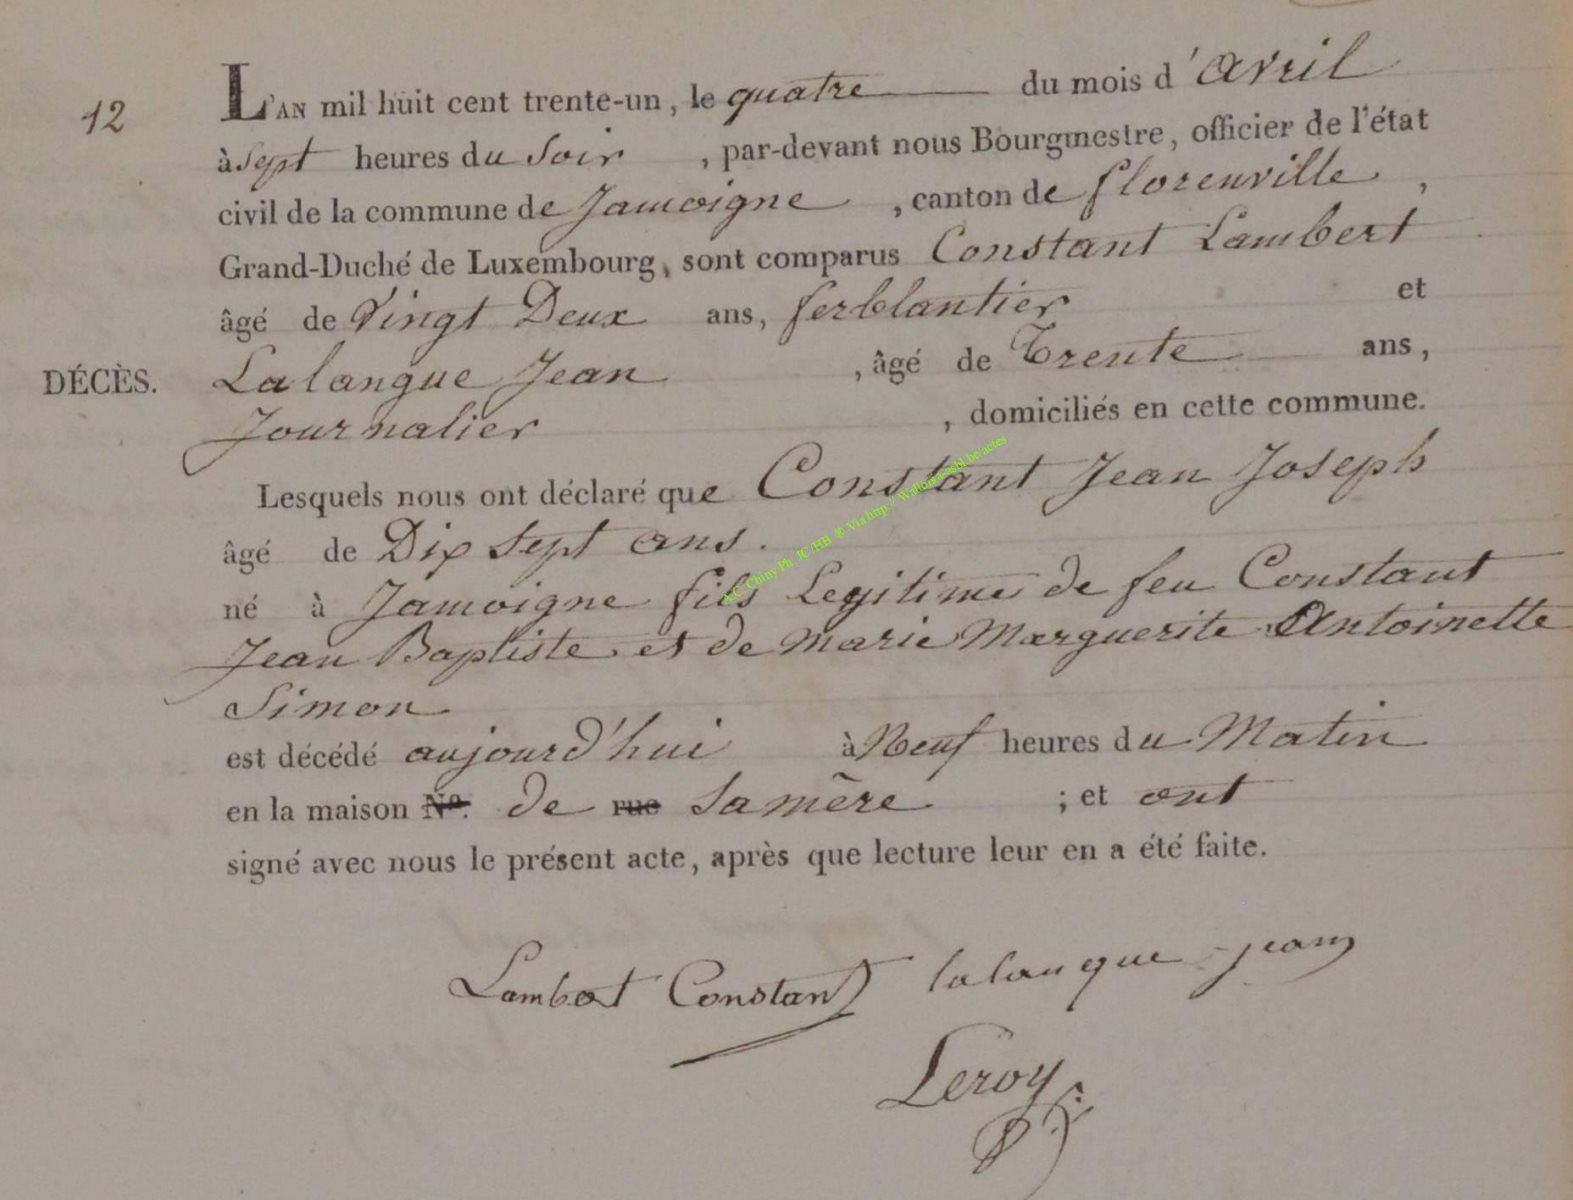 12
L'AN mil huit cent trente-un, le quatre du mois d'Avril
à Sept heures du Soir, par-devant nous Bourgmestre, officier de l'état
civil de la commune de Jamoigne, canton de florenville,
Grand-Duché de Luxembourg, sont comparus Constant Lambert
âgé de Vingt Deux ans, ferblantier et
DÉCÈS. Lalangue Jean, âgé de Trente ans,
Journalier, domiciliés en cette commune.
Lesquels nous ont déclaré que Constant Jean Joseph
âgé de Dix Sept ans.
né à Jamoigne fils Legitime de feu Constant
Jean Baptiste et de Marie Marguerite Antoinette
Simon
est décédé aujourd'hui à Neuf heures du Matin
en la maison N°. de rue Sa mère ; et ont
signé avec nous le présent acte, après que lecture leur en a été faite.
Lambert Constant lalangue jean
Leroy
A.C. Chiny Ph. JC/HB @ Via http:// Wallonia-asbl.be/actes